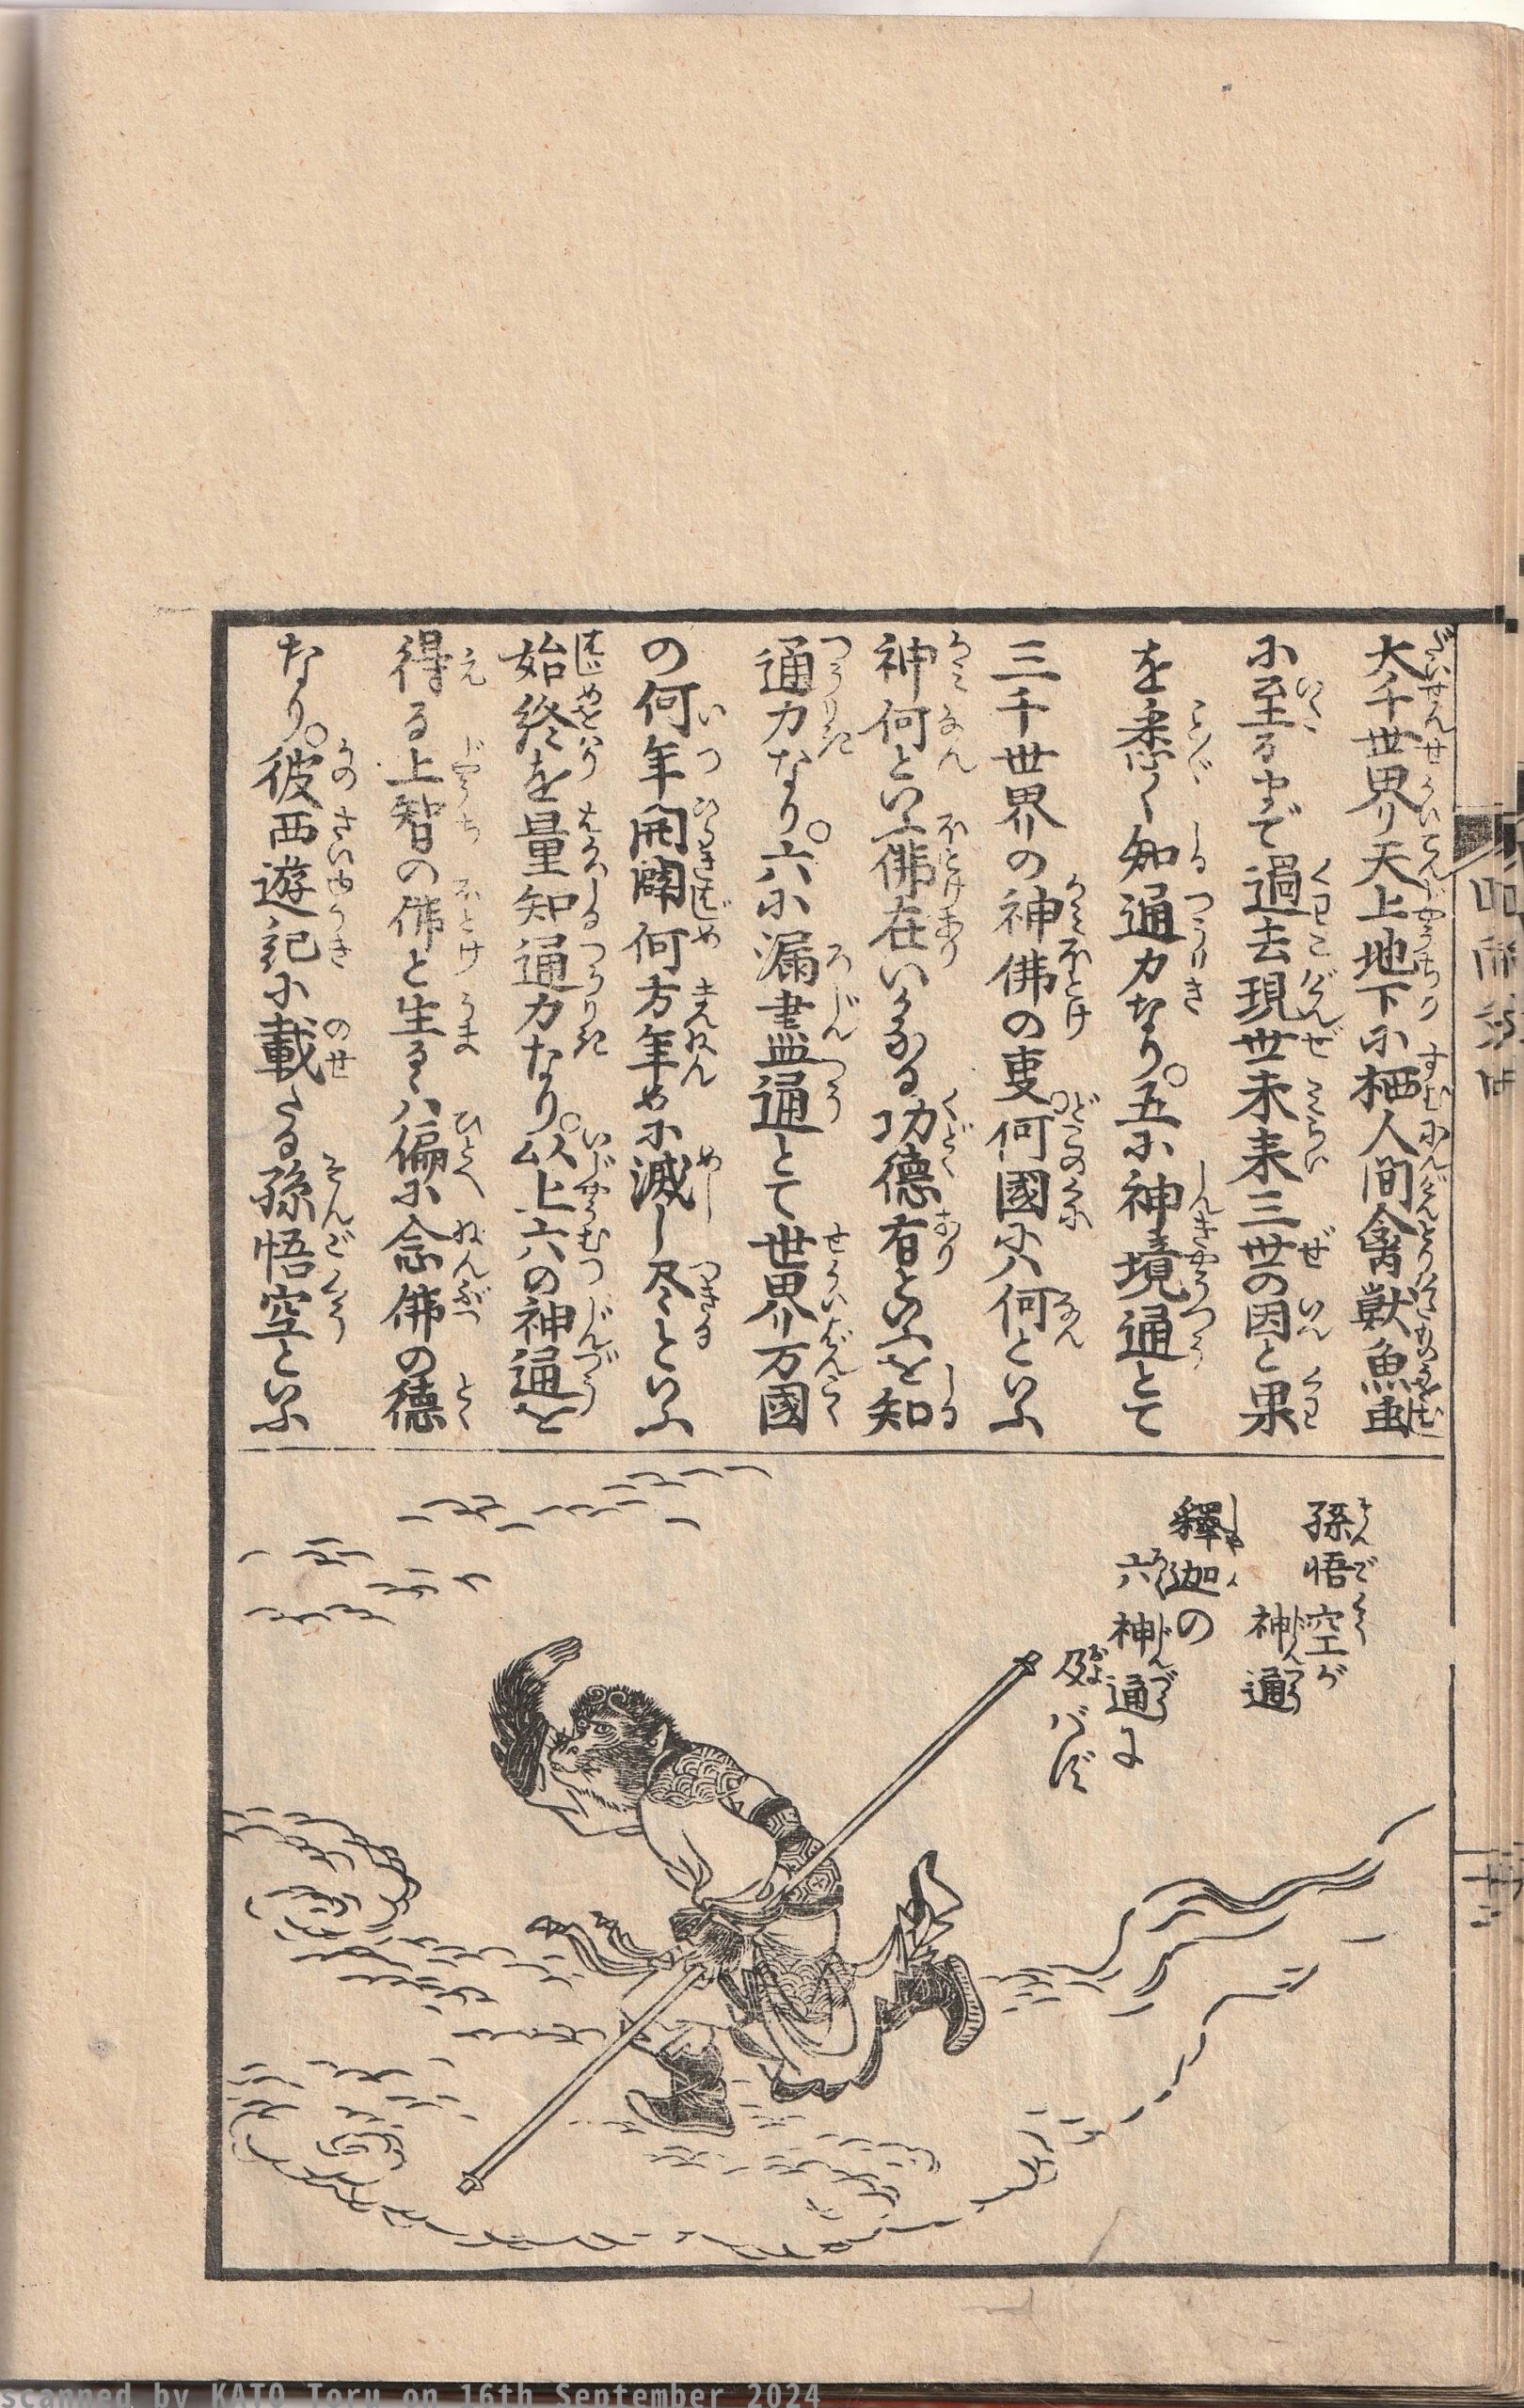 大千世界天上地下に栖人間禽獣魚虫
に至るまで過去現世未来三世の因と果
を悉く知通力なり。五に神境通とて
三千世界の神佛の叓何國にハ何といふ
神何といふ佛在いかなる功德有といふを知
通力なり。六に漏盡通とて世界万國
の何年開闢何方年めに滅し尽るといふ
始終を量知通力なり。以上六の神通を
得る上智の佛と生るゝハ偏に念佛の徳
なり。彼西遊記に載たる孫悟空といふ
孫悟空が
神通
釋迦の
六神通に
及バず
scanned by KATO Toru on 16th September 2024